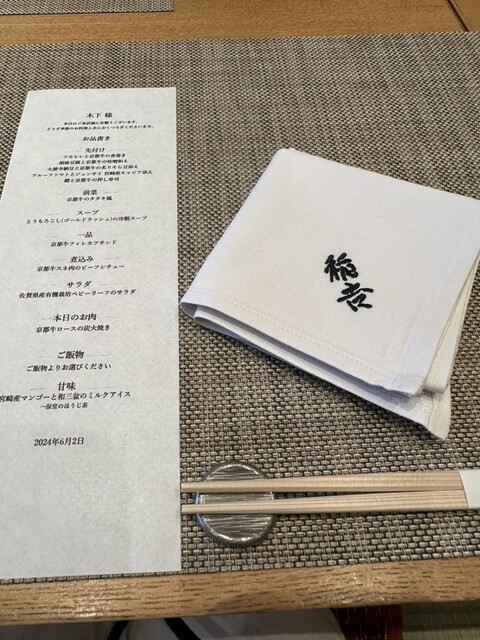 木下 様
本日はご来店誠に有難うございます。
どうぞ季節のお料理と共におくつろぎくださいませ。
お品書き
先付け
フカヒレと京都牛の春巻き
胡麻豆腐と京都牛の味噌和え
大徳寺納豆と京都牛の炙りそら豆添え
フルーツトマトとジュンサイ 宮崎産キャビア添え
鱧と京都牛の押し寿司
前菜
京都牛のタタキ風
スープ
とうもろこし(ゴールドラッシュ)の冷製スープ
一品
京都牛フィレカツサンド
煮込み
京都牛スネ肉のビーフシチュー
サラダ
佐賀県産有機栽培ベビーリーフのサラダ
本日のお肉
京都牛ロースの炭火焼き
ご飯物
ご飯物よりお選びください
甘味
宮崎産マンゴーと和三盆のミルクアイス
一保堂のほうじ茶
2024年6月2日
稲吉